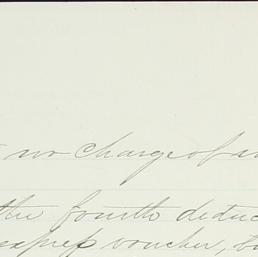 no charge of
the fourth deduc
express voucher,